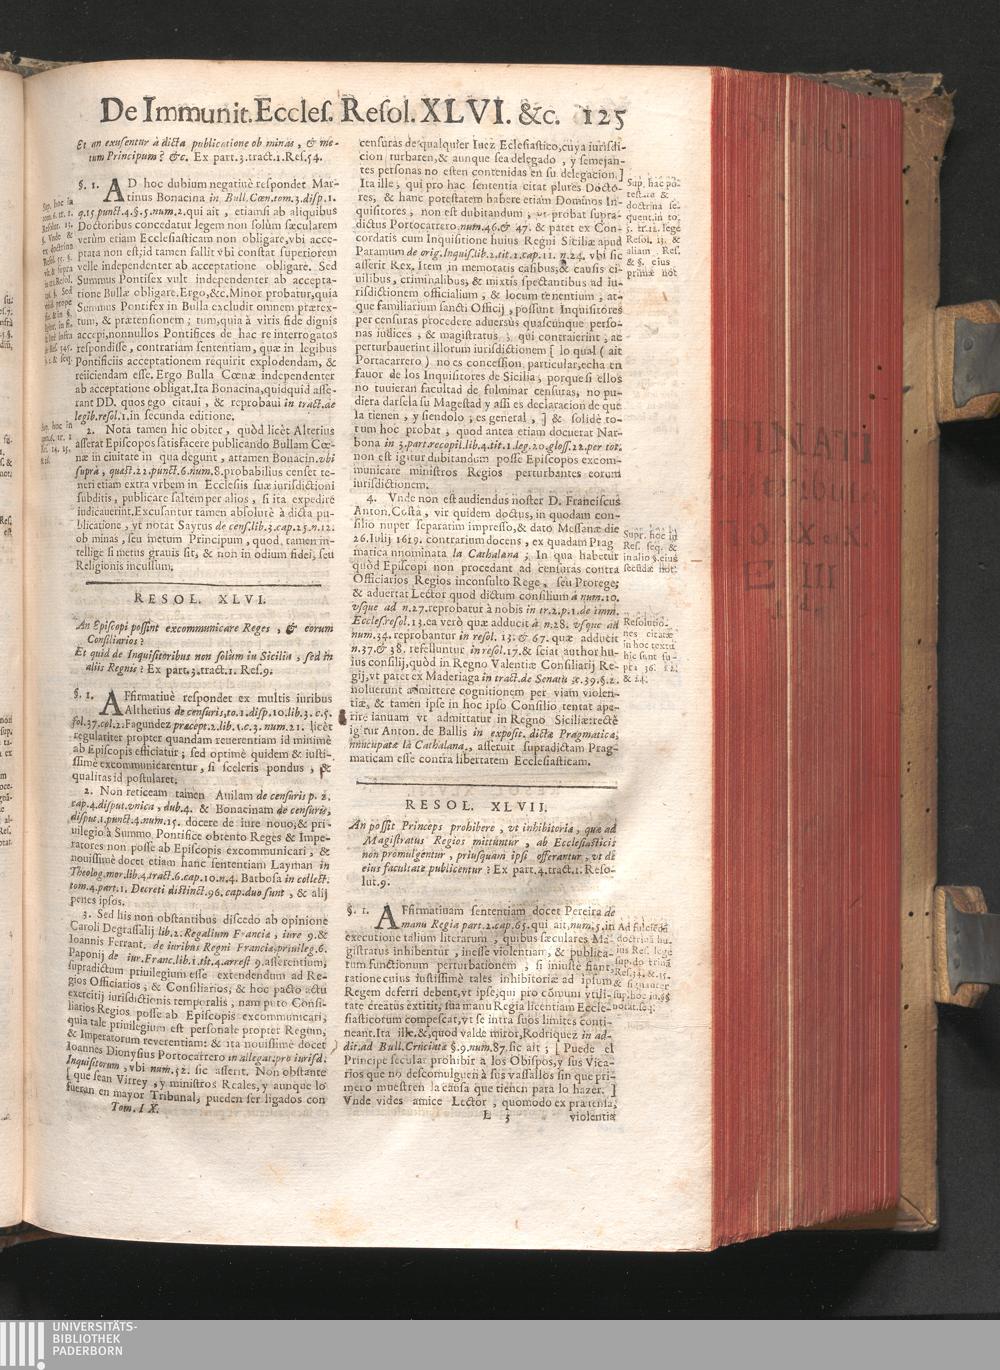 De Immunit. Eccles. Resol. XLVI. &c. 125
Et an exusentur à dicta publicatione ob minas, & me-
tum Principum? &c. Ex part.3.tract.1.Res.54.
§. 1. AD hoc dubium negatiuè respondet Mar-
tinus Bonacina in Bull. Cœn.tom.3.disp.1.
q.15.punct.4.§.5.num.2.qui ait, etiamsi ab aliquibus
Doctoribus concedatur legem non solùm sæcularem
verùm etiam Ecclesiasticam non obligare, vbi acce-
ptata non est; id tamen fallit vbi constat superiorem
velle independenter ab acceptatione obligare. Sed
Summus Pontifex vult independenter ab accepta-
tione Bullæ obligare. Ergo, &c. Minor probatur, quia
Summus Pontifex in Bulla excludit omnem prætex-
tum, & prætensionem; tum, quia à viris fide dignis
accepi, nonnullos Pontifices de hac re interrogatos
respondisse, contrariam sententiam, quæ in legibus
Pontificiis acceptationem requirit explodendam, &
reiiciendam esse. Ergo Bulla Cœnæ independenter
ab acceptatione obligat. Ita Bonacina, quidquid asse-
rant DD. quos ego citaui, & reprobaui in tract.de
legib.resol.1.in secunda editione.
2. Nota tamen hic obiter, quòd licèt Alterius
asserat Episcopos satisfacere publicando Bullam Cœ-
næ in ciuitate in qua degunt, attamen Bonacin.vbi
suprà, quæst.22.punct.6.num.8.probabilius censet te-
neri etiam extra vrbem in Ecclesiis suæ iurisdictioni
subditis, publicare saltem per alios, si ita expedire
indicauerint. Excusantur tamen absolutè à dicta pu-
blicatione, vt notat Sayrus de cens.lib.3.cap.25.n.12.
ob minas, seu metum Principum, quod tamen in-
tellige si metus grauis sit, & non in odium fidei, seu
Religionis incussum.
RESOL. XLVI.
An Episcopi possint excommunicare Reges, & eorum
Consiliarios?
Et quid de Inquisitoribus non solùm in Sicilia, sed in
aliis Regnis? Ex part.3.tract.1. Res.9.
§. 1. AFfirmatiuè respondet ex multis iuribus
Altherius de censuris, to.1.disp.10.lib.3.c.5.
fol.37.col.2. Fagundez præcept.2.lib.1.c.3.num.21. licèt
regulariter propter quandam reuerentiam id minimè
ab Episcopis efficiatur; sed optimè quidem & iusti-
ssimè excommunicarentur, si sceleris pondus, &
qualitas id postularet.
2. Non reticeam tamen Auilam de censuris p. 2.
cap.4.disput.vnica, dub.4. & Bonacinam de censuris,
disput.1.punct.4.num.15. docere de iure nouo, & pri-
uilegio à Summo Pontifice obtento Reges & Impe-
ratores non posse ab Episcopis excommunicari, &
nouissimè docet etiam hanc sententiam Layman in
Theolog.mor.lib.4.tract.6.cap.10.n.4. Barbosa in collect.
tom.4.part.1. Decreti distinct.96. cap.duo sunt, & alij
penes ipsos.
3. Sed his non obstantibus discedo ab opinione
Caroli Degrassalij lib.2. Regalium Francia, iure 9.&
Ioannis Ferrant. de iuribus Regni Francia, priuileg.6.
Paponij de iur.Franc.lib.1.tit.4.arrest 9.asserentium,
supradictum priuilegium esse extendendum ad Re-
gios Officiarios, & Consiliarios, & hoc pacto actu
exercitij iurisdictionis temporalis, nam puto Consi-
liarios Regios posse ab Episcopis excommunicari,
quia tale priuilegium est personale propter Regum,
& Imperatorum reuerentiam: & ita nouissimè docet
Ioannes Dionysius Portocarrero in allegat.pro iurisd.
Inquisitorum, vbi num.52. sic asserit. Non obstante
[ que sean Virrey, y ministros Reales, y aunque lo
fueran en mayor Tribunal, pueden ser ligados con
Tom. IX.
censuras de qualquier Iuez Eclesiastico, cuya iurisdi-
cion turbaren, & aunque sea delegado, y semejan-
tes personas no esten contenidas en su delegacion.]
Ita ille, qui pro hac sententia citat plures Docto-
res, & hanc potestatem habere etiam Dominos In-
quisitores, non est dubitandum, vt probat supra-
dictus Portocarrero num.46.& 47. & patet ex Con-
cordatis cum Inquisitione huius Regni Siciliæ apud
Paramum de orig.Inquis.lib.2.tit.2.cap.11. n.24. vbi sic
asserit Rex. Item in memoratis casibus, & causis ci-
uilibus, criminalibus, & mixtis spectantibus ad iu-
risdictionem officialium, & locum tenentium, at-
que familiarium sancti Officij, possunt Inquisitores
per censuras procedere aduersus quascunque perso-
nas iudices, & magistratus, qui contraierint, ac
perturbauerint illorum iurisdictionem [ lo qual ( ait
Portacarrero ) no es concession particular, echa en
fauor de los Inquisitores de Sicilia, porque si ellos
no tuuieran facultad de fulminar censuras, no pu-
diera darsela su Magestad y assi es declaracion de que
la tienen, y siendolo, es general, ] & solidè to-
tum hoc probat, quod antea etiam docuerat Nar-
bona in 3.part.recopil.lib.4.tit.1.leg.20.gloss.22.per tot.
non est igitur dubitandum posse Episcopos excom-
municare ministros Regios perturbantes eorum
iurisdictionem.
4. Vnde non est audiendus noster D. Franciscus
Anton. Costa, vir quidem doctus, in quodam con-
silio nuper separatim impresso, & dato Messanæ die
26. Iulij 1619. contrarium docens, ex quadam Prag
matica nnominata la Cathalana; In qua habetur
quòd Episcopi non procedant ad censuras contra
Officiarios Regios inconsulto Rege, seu Prorege;
& aduertat Lector quod dictum consilium à num.10.
vsque ad n.27.reprobatur à nobis in tr.2.p.1.de imm.
Eccles.resol.13.ea verò quæ adducit à n.28. vsque ad
num.34. reprobantur in resol. 13. & 67. quæ adducit
n.37.& 38. refelluntur in resol.17. & sciat author hu-
ius consilij, quòd in Regno Valentiæ Consiliarij Re-
gij, vt patet ex Maderiaga in tract.de Senatu c.39.§.2.
noluerunt admittere cognitionem per viam violen-
tiæ, & tamen ipse in hoc ipso Consilio tentat ape-
rire ianuam vt admittatur in Regno Siciliæ: rectè
igitur Anton. de Ballis in exposit. dictæ Pragmatica,
nuncupatæ la Cathalana, asseruit supradictam Prag-
maticam esse contra libertatem Ecclesiasticam.
RESOL. XLVII.
An possit Princeps prohibere, vt inhibitoria, quæ ad
Magistratus Regios mittuntur, ab Ecclesiasticis
non promulgentur, priusquam ipsi offerantur, vt de
eius facultate publicentur? Ex part.4.tract.1. Reso-
lut.9.
§. 1. AFfirmatiuam sententiam docet Pereira de
manu Regia part.2.cap.65.qui ait, num.5.in
executione talium literarum, quibus sæculares Ma-
gistratus inhibentur, inesse violentiam, & publica-
tum functionum perturbationem, si iniustè fiant,
ratione cuius iustissimè tales inhibitoriæ ad ipsum
Regem deferri debent, vt ipse, qui pro cõmuni vtili-
tate creatus extitit, sua manu Regia licentiam Eccle-
siasticorum compescat, vt se intra suos limites conti-
neant. Ita ille, &, quod valde miror, Rodriquez in ad-
dit.ad Bull.Cruciatæ §.9.num.87. sic ait; [ Puede el
Principe secular prohibir a los Obispos, y sus Vica-
rios que no descomulguen à sus vassallos sin que pri-
mero muestren la causa que tienen para lo hazer. ]
Vnde vides amice Lector, quomodo ex prætensa,
L 3
violentia
Sup. hac po-
test.ta &
doctrina se-
quent.in to.
3. tr.12. lege
Resol. 13. &
aliam. Res.
& §. eius
primæ not
Supr. hoc in
Res. seq. &
in alio §. eius
secũdæ not.
Resolutio-
nes citatæ
in hoc textu
hic sunt su-
pr: 36. 12.
& 14.
UNIVERSITÄTS-
BIBLIOTHEK
PADERBORN